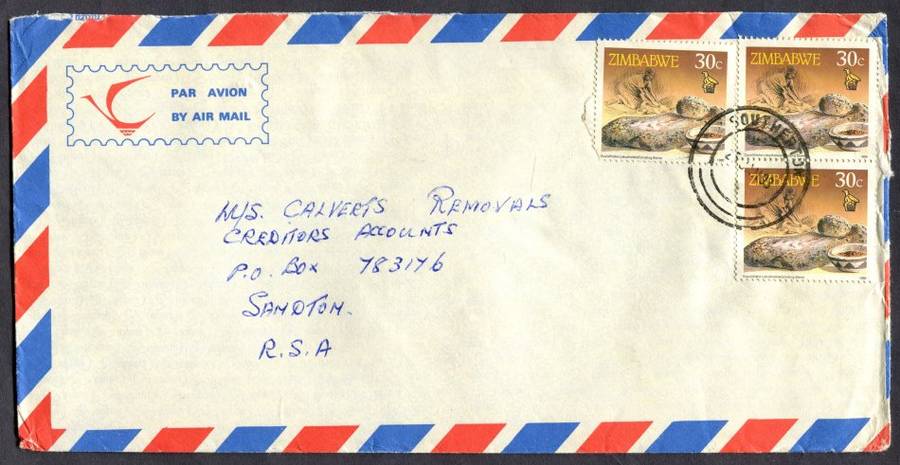 PAR AVION
BY AIR MAIL
ZIMBABWE 30c
ZIMBABWE 30c
SOUTHERTON
ZIMBABWE 30c
M/S. CALVERTS REMOVALS
CREDITORS ACCOUNTS
P.O. BOX 783176
SANDTON.
R.S.A